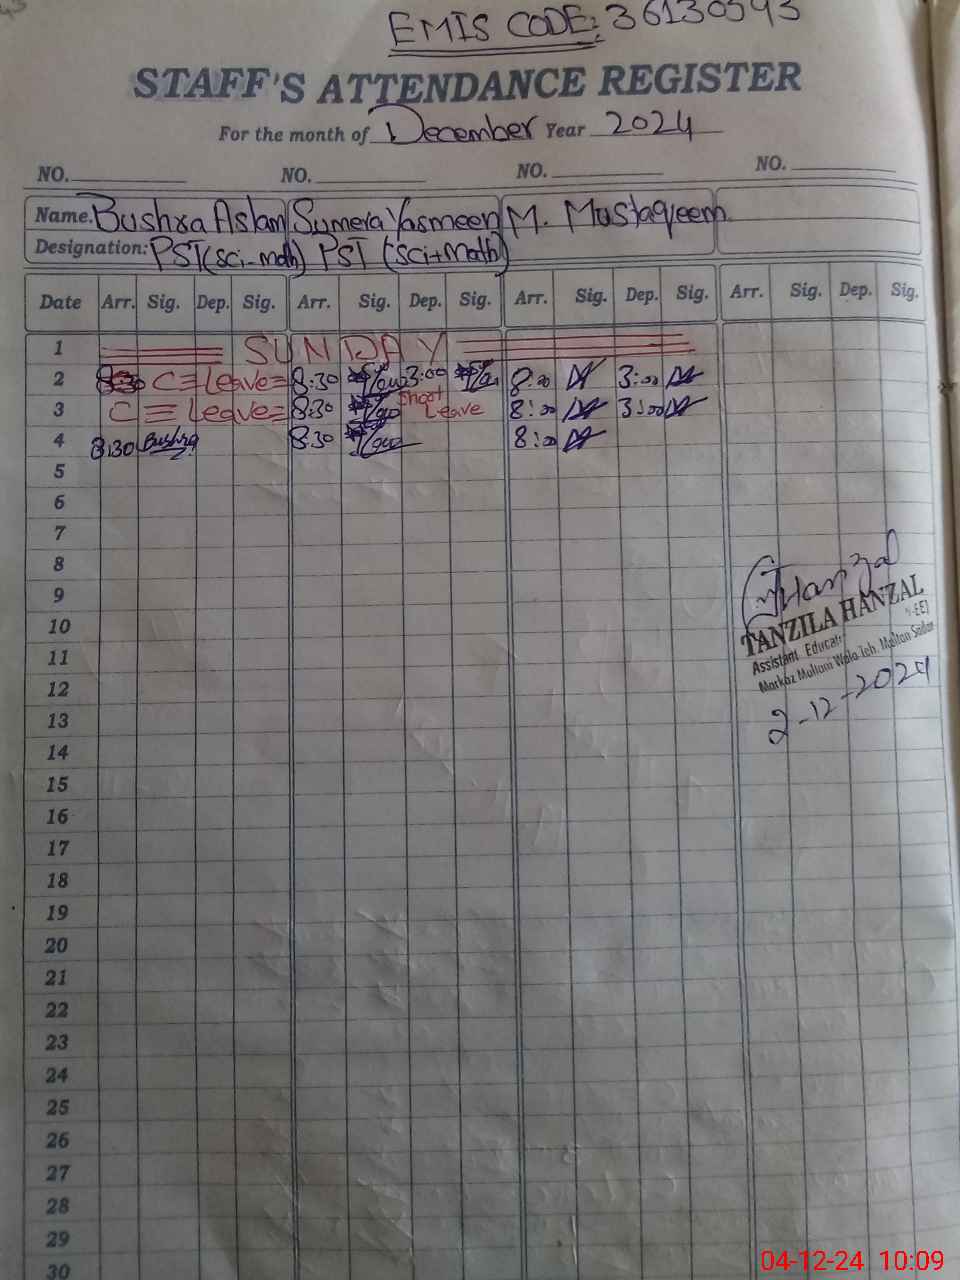 EMIS CODE: 36130593
STAFF'S ATTENDANCE REGISTER
For the month of December Year 2024
NO. NO. NO. NO.
Name. Bushra Aslam Sumera Yasmeen M. Mustaqeem
Designation: PST (Sci-math) PST (Sci+Math)
Date Arr. Sig. Dep. Sig. Arr. Sig. Dep. Sig. Arr. Sig. Dep. Sig. Arr. Sig. Dep. Sig.
1 SUNDAY
2 C = Leave = 8:30 3:00 8:00 3:00
3 C = Leave = 8:30 Short Leave 8:00 3:00
4 8:30 Bushra 8:30 8:00
5
6
7
8
9
10
11
12
13
14
15
16
17
18
19
20
21
22
23
24
25
26
27
28
29
30
Hanzal
TANZILA HANZAL
Assistant Educati
Markaz Multani Wala Teh. Multan Sadar
2-12-2024
04-12-24 10:09